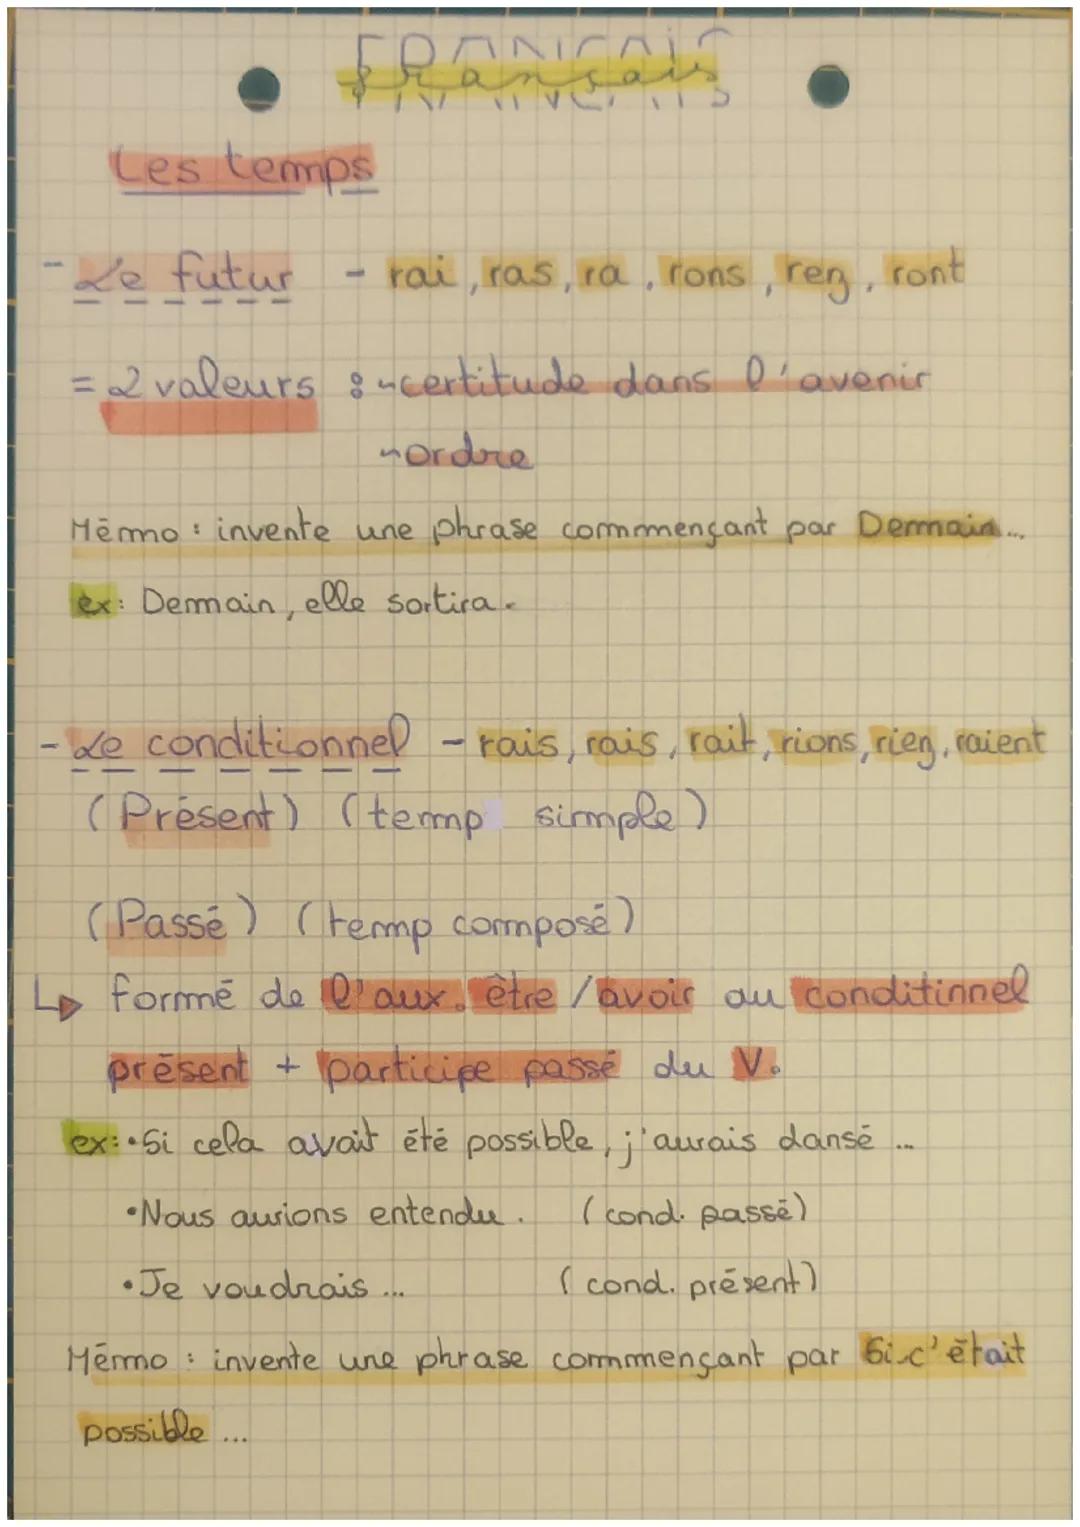 Français
Les temps
- Le futur - rai, ras, ra, rons, rez, ront
= 2 valeurs : ~certitude dans l'avenir
~ordre
Mémo : invente une phrase commençant par Demain...
ex: Demain, elle sortira.
- Le conditionnel - rais, rais, rait, rions, riez, raient
(Présent) (temp simple)
(Passé) (temp composé)
↳ formé de l'aux. être / avoir au conditinnel
présent + participe passé du V.
ex: •Si cela avait été possible, j'aurais dansé ...
•Nous aurions entendu. (cond. passé)
•Je voudrais... (cond. présent)
Mémo : invente une phrase commençant par Si c'était
possible ...